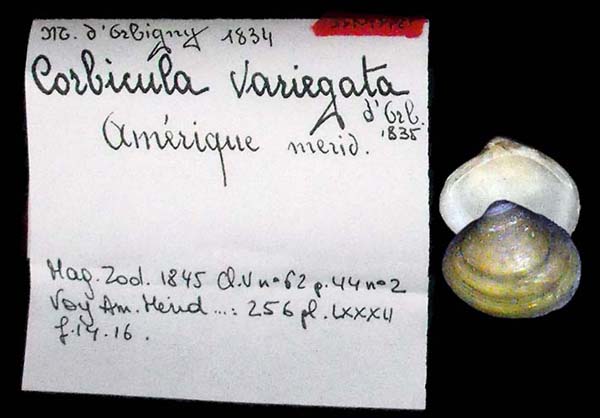 M. d'Orbigny 1834
Corbicula variegata
d'Orb.
1835
Amérique merid.
Mag. Zool. 1845 Cl. V n° 62 p. 44 n° 2
Voy Am. Merid ...: 256 pl. LXXXII
f. 14. 16.